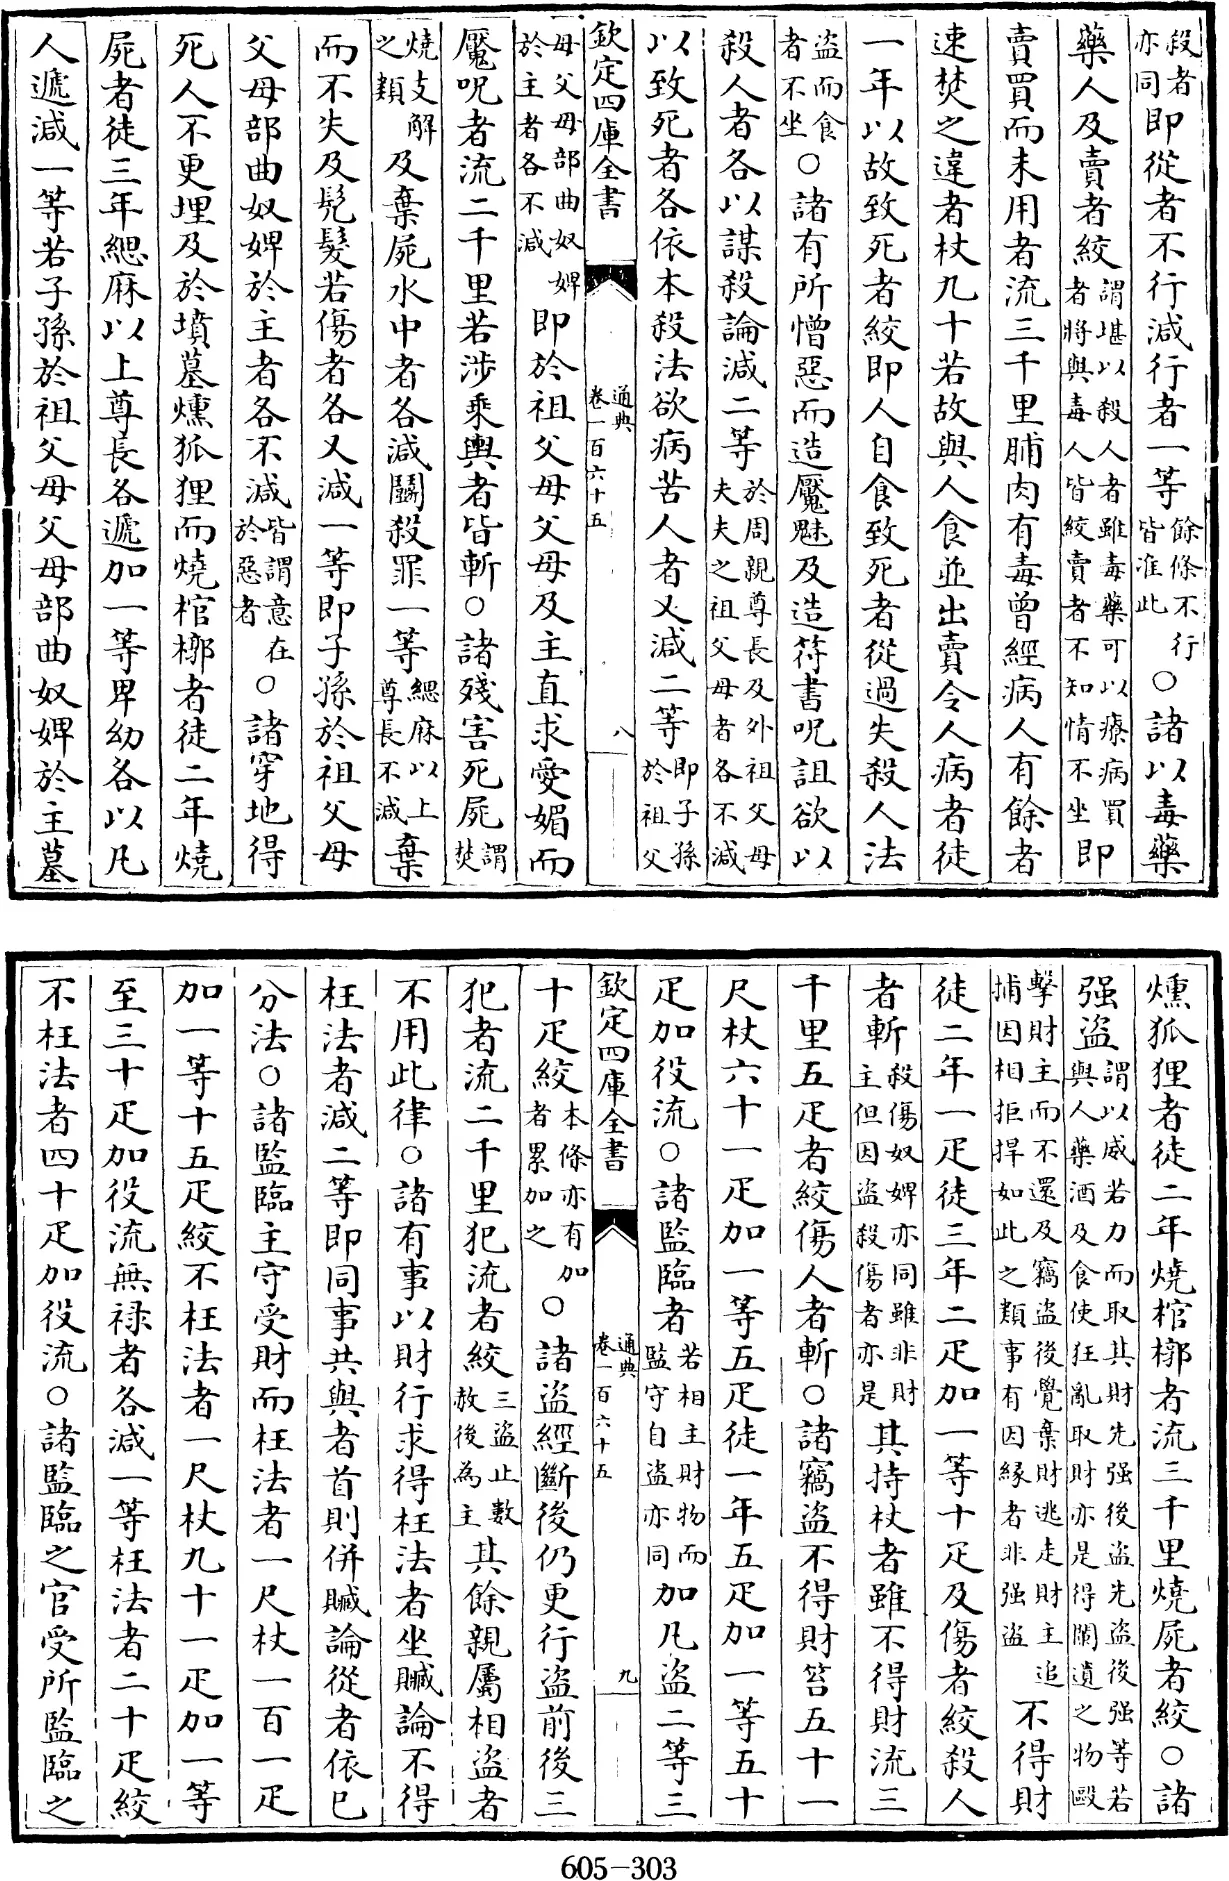 殺者亦同即從者不行減行者一等餘條不行皆准此○諸以毒藥
藥人及賣者絞謂堪以殺人者雖毒藥可以療病買者將與毒人皆絞賣者不知情不坐即
賣買而未用者流三千里脯肉有毒曾經病人有餘者
速焚之違者杖九十若故與人食並出賣令人病者徒
一年以故致死者絞即人自食致死者從過失殺人法
盗而食者不坐○諸有所憎惡而造魘魅及造符書呪詛欲以
殺人者各以謀殺論減二等於周親尊長及外祖父母夫夫之祖父母者各不減
以致死者各依本殺法欲病苦人者又減二等即子孫於祖父
欽定四庫全書
通典卷一百六十五
八
母父母部曲奴婢於主者各不減即於祖父母父母及主直求愛媚而
魘呪者流二千里若涉乘輿者皆斬○諸殘害死屍謂焚
燒支解之類及棄屍水中者各減鬬殺罪一等緦麻以上尊長不減棄
而不失及髡髮若傷者各又減一等即子孫於祖父母
父母部曲奴婢於主者各不減皆謂意在於惡者○諸穿地得
死人不更埋及於墳墓燻狐狸而燒棺槨者徒二年燒
屍者徒三年緦麻以上尊長各遞加一等卑幼各以凡
人遞減一等若子孫於祖父母父母部曲奴婢於主墓
燻狐狸者徒二年燒棺槨者流三千里燒屍者絞○諸
强盗謂以威若力而取其財先强後盗先盗後强等若與人藥酒及食使狂亂取財亦是得闌遺之物毆
擊財主而不還及竊盗後覺棄財逃走財主追捕因相拒捍如此之類事有因緣者非强盗不得財
徒二年一疋徒三年二疋加一等十疋及傷者絞殺人
者斬殺傷奴婢亦同雖非財主但因盗殺傷者亦是其持杖者雖不得財流三
千里五疋者絞傷人者斬○諸竊盗不得財笞五十一
尺杖六十一疋加一等五疋徒一年五疋加一等五十
疋加役流○諸監臨者若相主財物而監守自盗亦同加凡盗二等三
欽定四庫全書
通典卷一百六十五
九
十疋絞本條亦有加者累加之○諸盗經斷後仍更行盗前後三
犯者流二千里犯流者絞三盗止數赦後為主其餘親屬相盗者
不用此律○諸有事以財行求得枉法者坐贓論不得
枉法者減二等即同事共與者首則併贓論從者依已
分法○諸監臨主守受財而枉法者一尺杖一百一疋
加一等十五疋絞不枉法者一尺杖九十一疋加一等
至三十疋加役流無禄者各減一等枉法者二十疋絞
不枉法者四十疋加役流○諸監臨之官受所監臨之
605-303